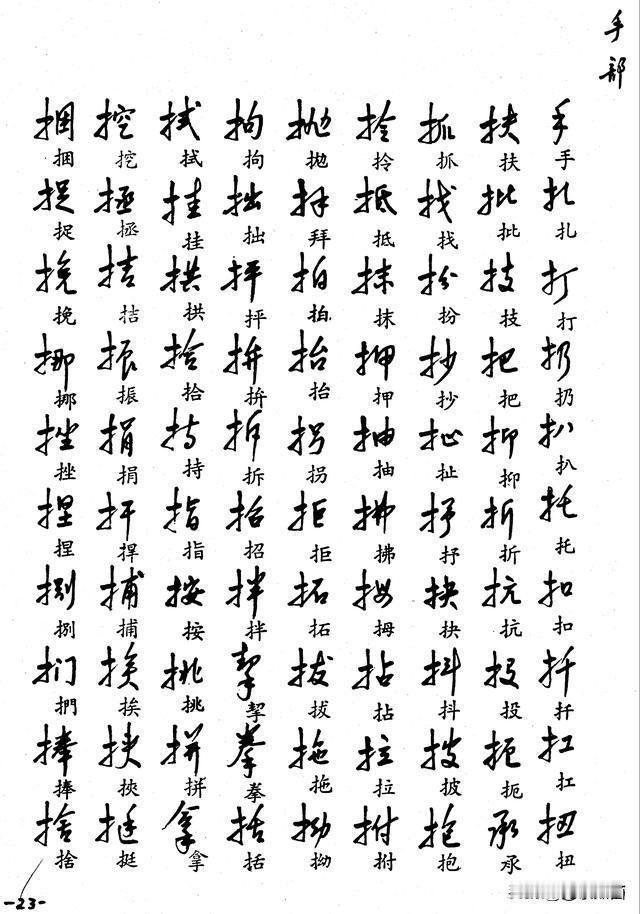 手部
手手扎扎打打扔扔扒扒托托扣扣扦扦扛扛扭扭
扶扶批批技技把把抑抑折折抗抗投投扼扼承承
抓抓找找扮扮抄抄扯扯抒抒抉抉抖抖披披抱抱
拎拎抵抵抹抹押押抽抽拂拂拇拇拈拈拉拉拊拊
抛拋拜拜拍拍抬抬拐拐拒拒拓拓拔拔拖拖拗拗
拘拘拙拙抨抨拚拚拆拆招招拌拌挈挈拳拳括括
拭拭挂挂拱拱拾拾持持指指按按挑挑拼拼拿拿
挖挖拯拯拮拮振振捐捐捍捍捕捕挨挨挟挾挺挺
捆捆捉捉挽挽挪挪挫挫捏捏捌捌扪捫捧捧捨捨
-23-